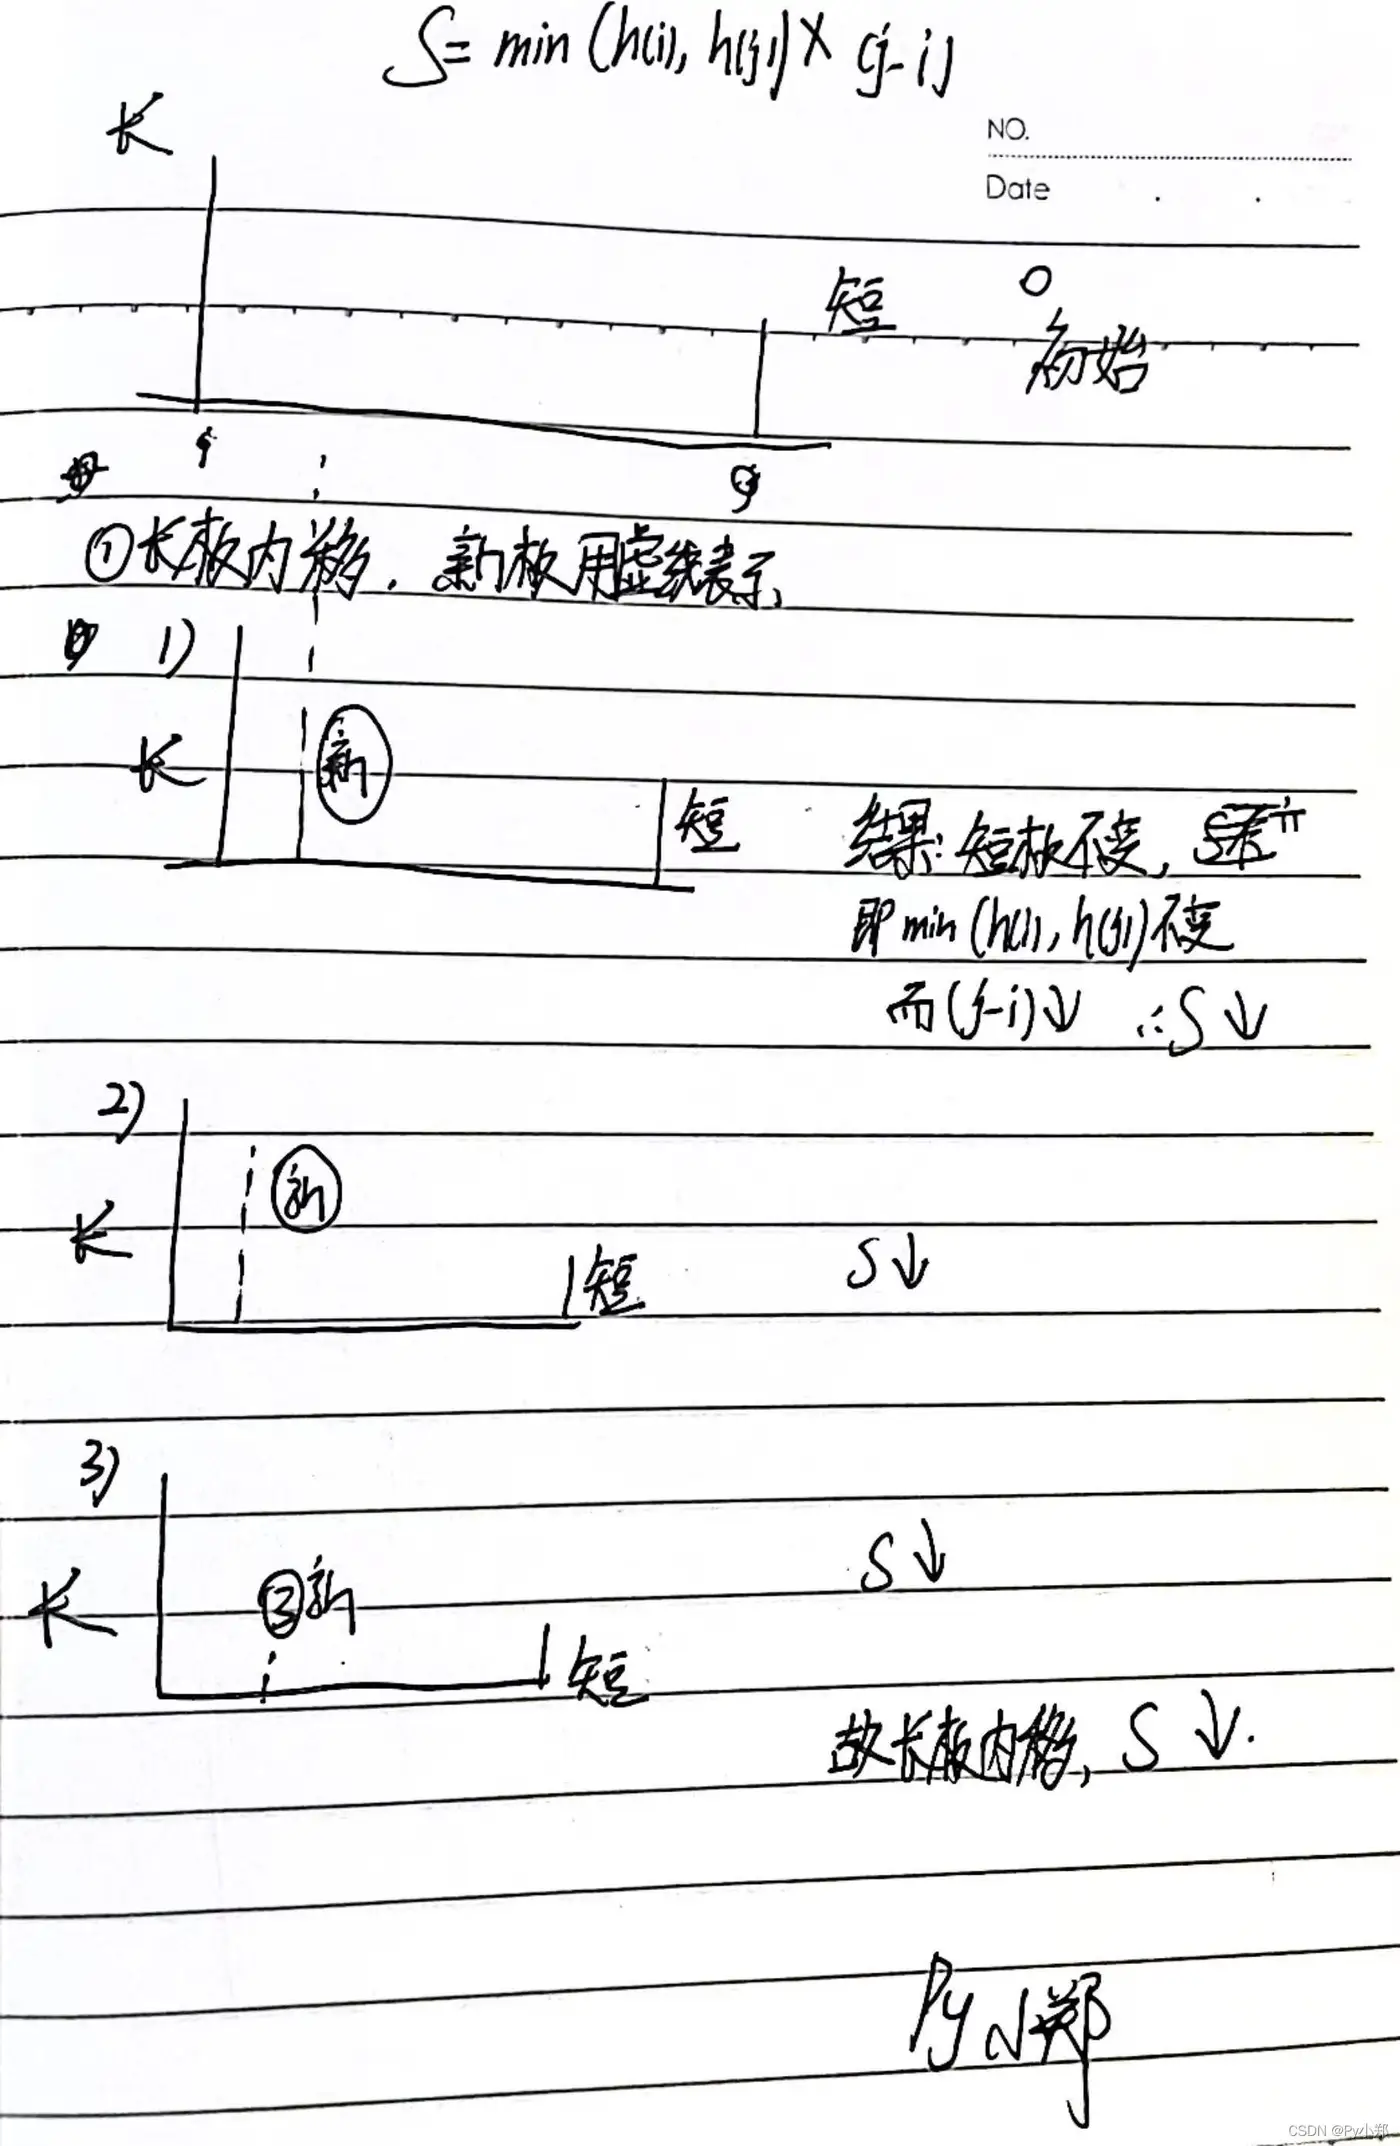 S= min (h(i), h(j)) × (j-i)
长
NO.
Date
短
0
初始
i
j
①长板内移. 新板用虚线表示,
1)
新
长
短
结果: 短板不变,
即 min (h(i), h(j)) 不变
而(j-i)↓ ∴S↓
2)
新
长
短
S↓
3)
S↓
长
新
短
故长板内移, S↓.
Py小郑
CSDN @Py小郑